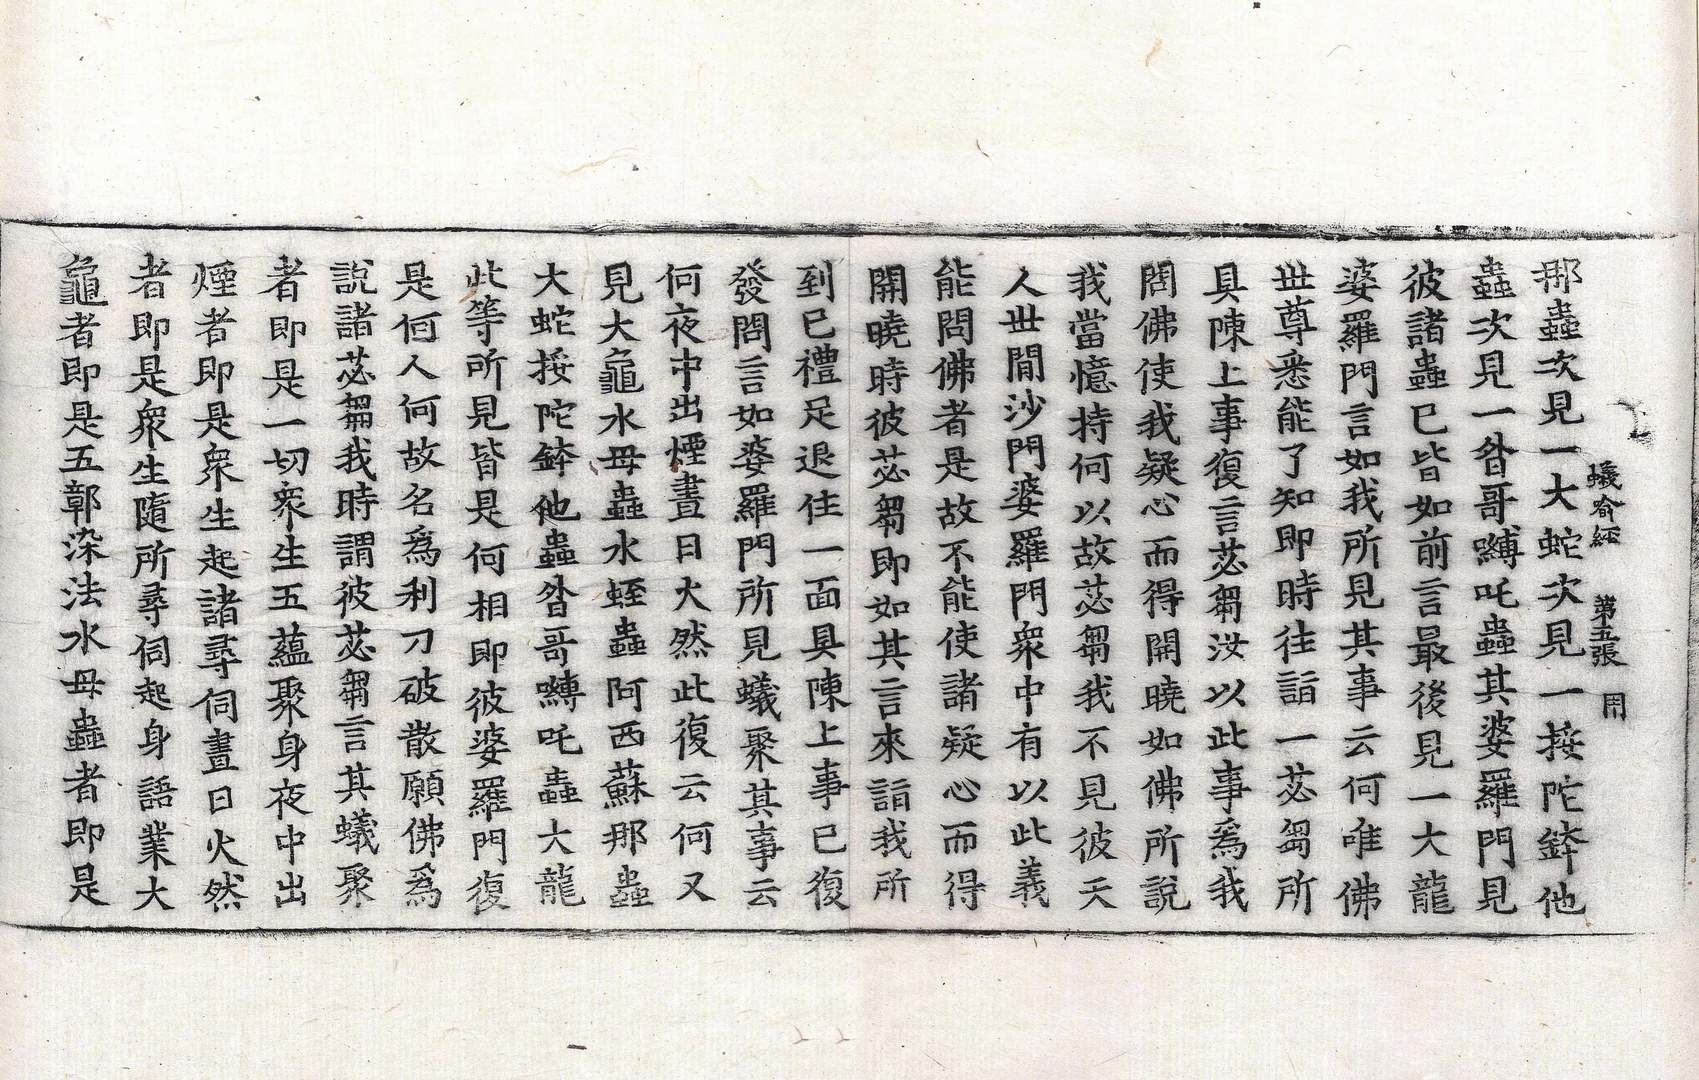 蟻喩経　第五張　用
那蟲次見一大蛇次見一挼陀鉢他
蟲次見一沓哥嚩吒蟲其婆羅門見
彼諸蟲已皆如前言最後見一大龍
婆羅門言如我所見其事云何唯佛
世尊悉能了知即時往詣一苾芻所
具陳上事復言苾芻汝以此事爲我
問佛使我疑心而得開曉如佛所說
我當憶持何以故苾芻我不見彼天
人世間沙門婆羅門衆中有以此義
能問佛者是故不能使諸疑心而得
開曉時彼苾芻即如其言來詣我所
到已禮足退住一面具陳上事已復
發問言如婆羅門所見蟻聚其事云
何夜中出煙晝日火然此復云何又
見大龜水母蟲水蛭蟲阿西蘇那蟲
大蛇挼陀鉢他蟲沓哥嚩吒蟲大龍
此等所見皆是何相即彼婆羅門復
是何人何故名爲利刀破散願佛爲
說諸苾芻我時謂彼苾芻言其蟻聚
者即是一切衆生五蘊聚身夜中出
煙者即是衆生起諸尋伺晝日火然
者即是衆生隨所尋伺起身語業大
龜者即是五鄣染法水母蟲者即是